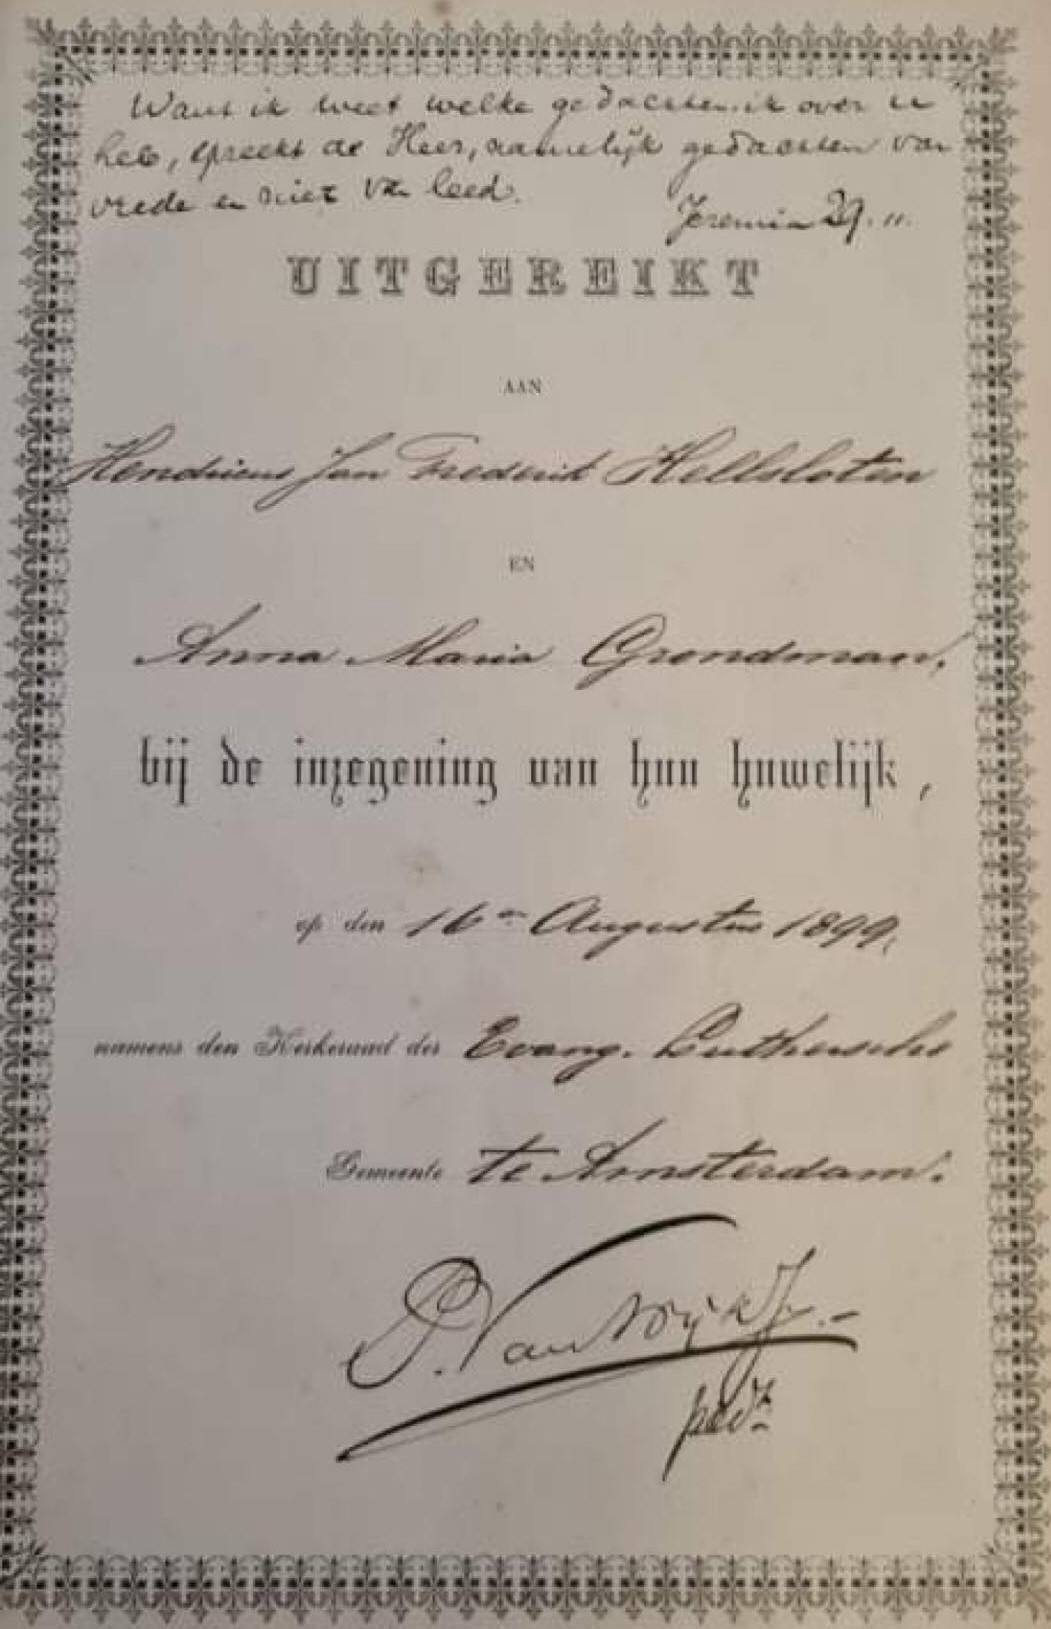 Want ik weet welke gedachten ik over u
heb, spreekt de Heer, namelijk gedachten van
vrede en niet van leed.
Jeremia 29.11.
UITGEREIKT
AAN
Hendricus Jan Frederik Hellsloten
EN
Anna Maria Grondman,
bij de inzegening van hun huwelijk,
op den 16en Augustus 1899,
namens den Kerkeraad der Evang. Luthersche
Gemeente te Amsterdam.
P. van Wijk Jr.
pred.t